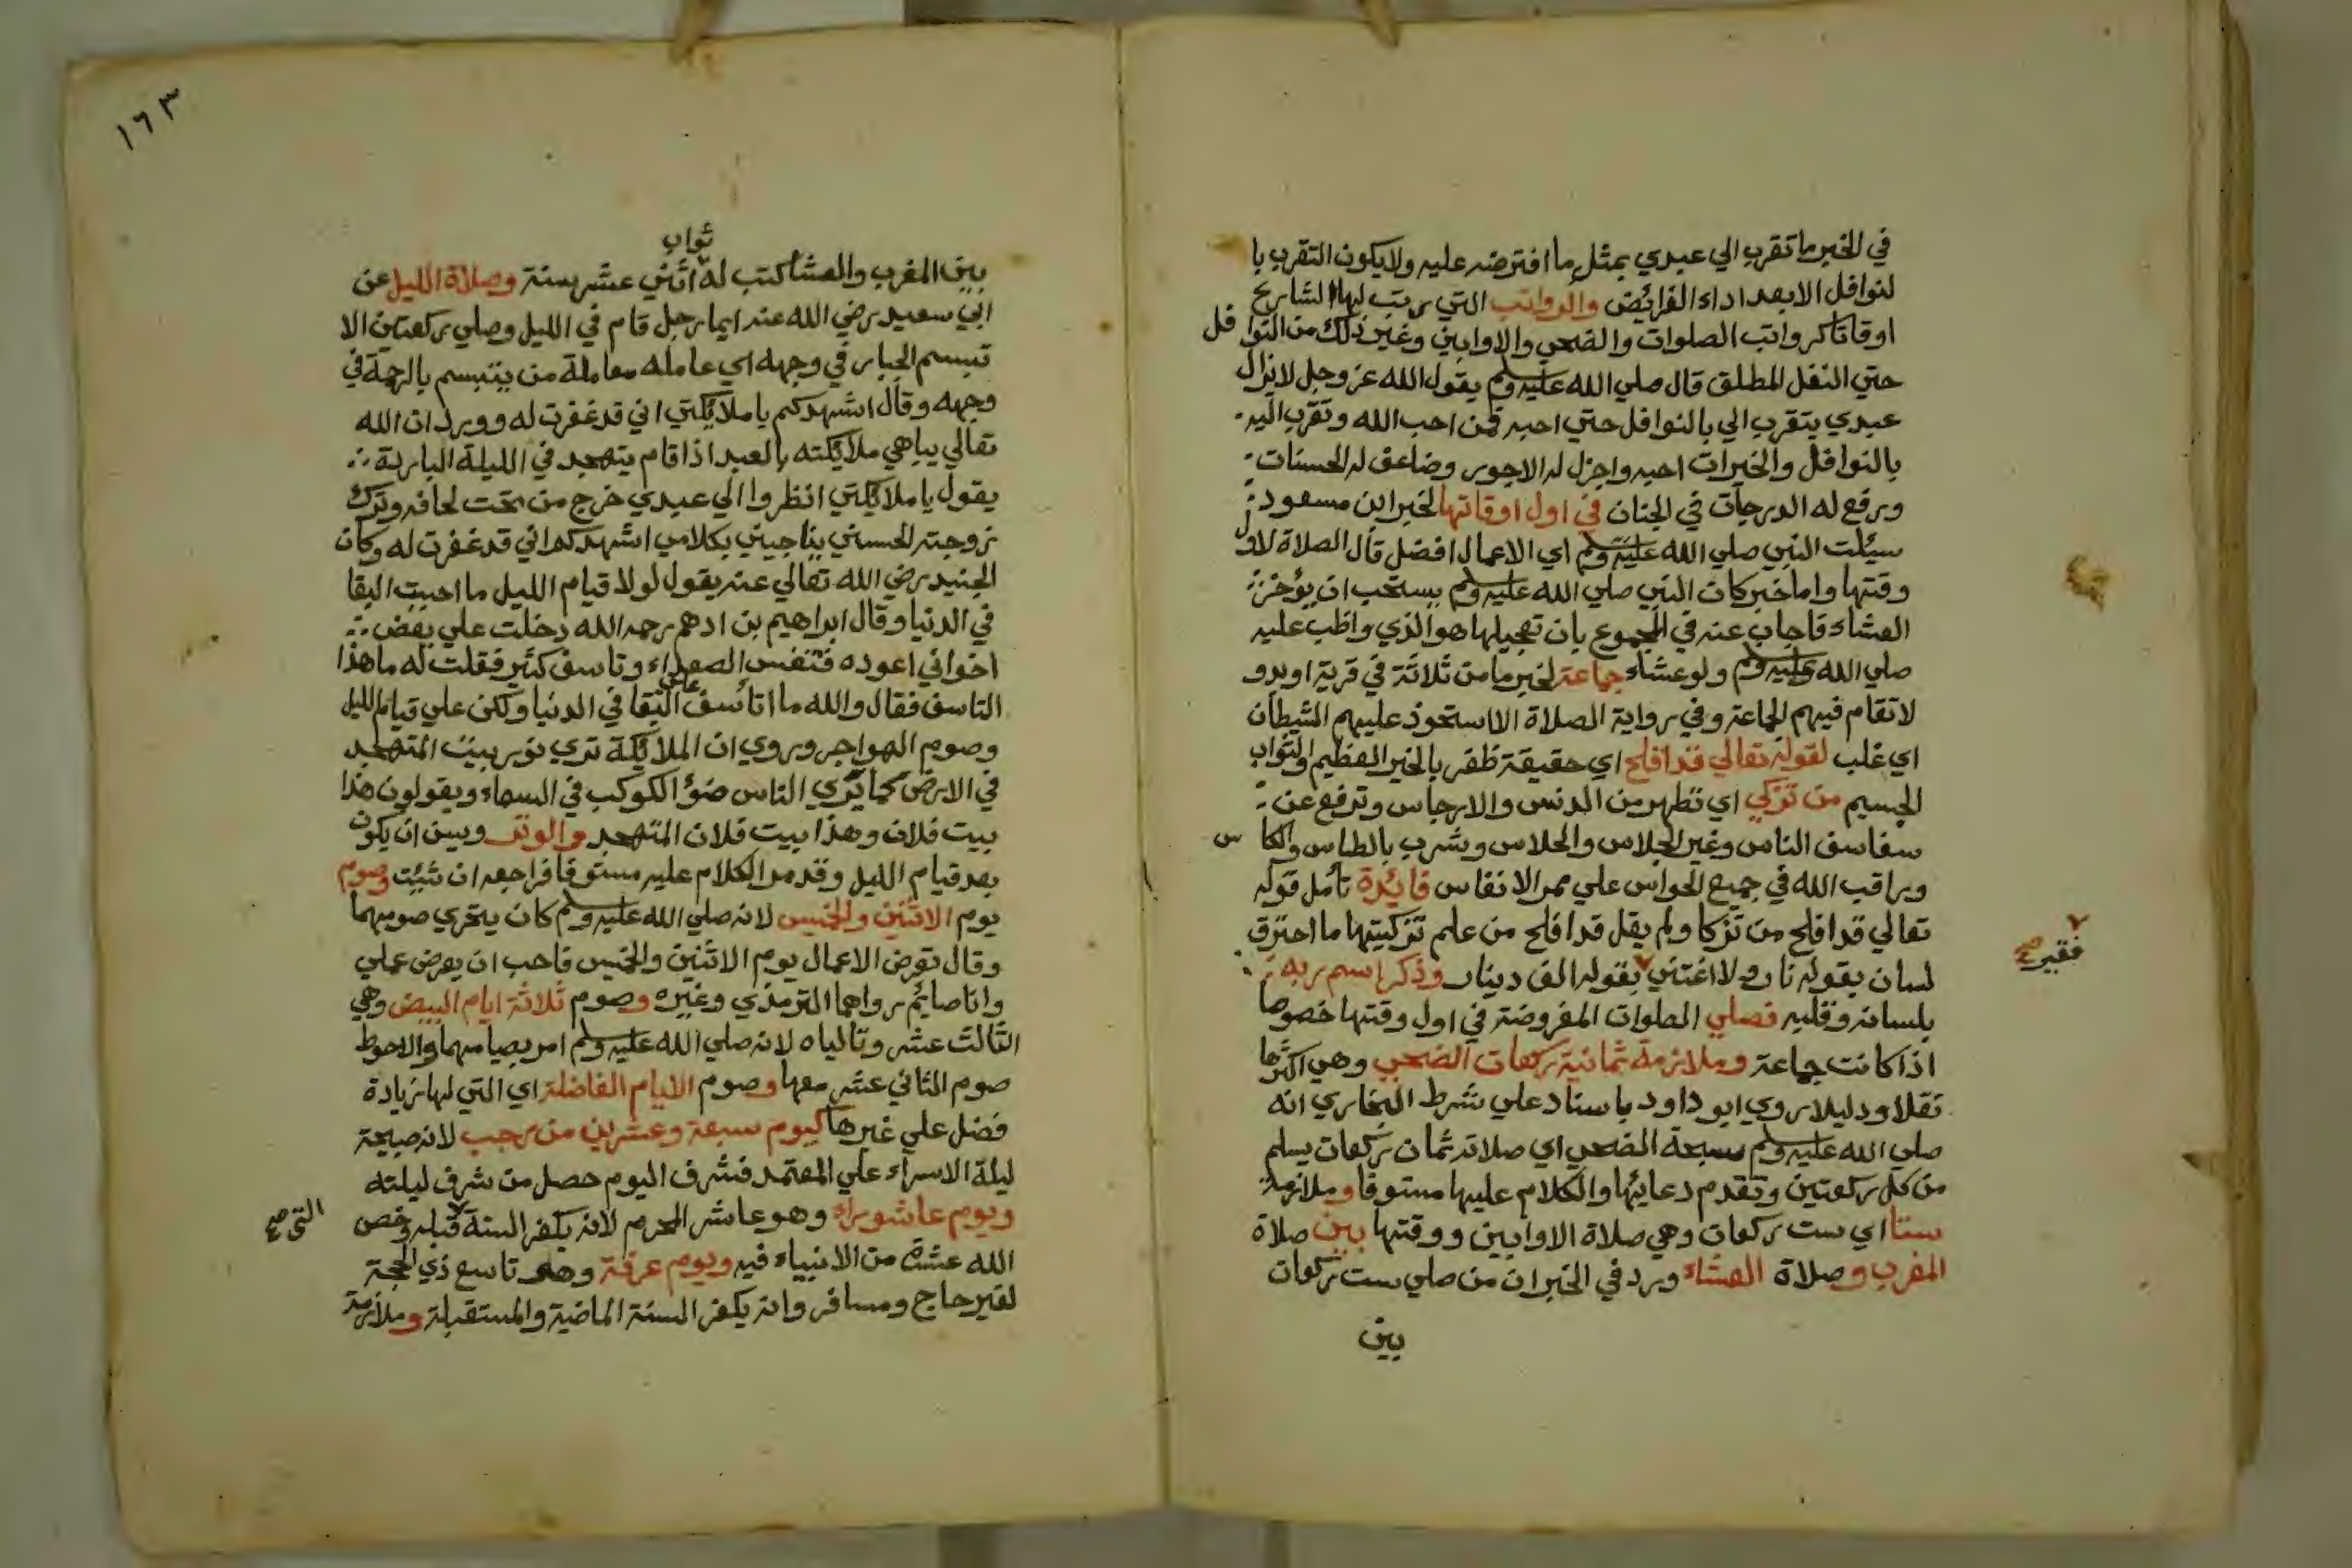 في الخبر ما تقرب الي عبدي بمثل ما افترضه عليه ولا يكون التقرب با
لنوافل الا بعد اداء الفرائض والرواتب التي رتب لها الشارع
اوقاتا كرواتب الصلوات والضحي والاوابين وغير ذلك من النوافل
حتي النفل المطلق قال صلي الله عليه وسلم يقول الله عز وجل لا يزال
عبدي يتقرب الي بالنوافل حتي احبه فمن احب الله وتقرب اليه
بالنوافل والخيرات احبه واجزل له الاجور وضاعف له الحسنات
ورفع له الدرجات في الجنان في اول اوقاتها لخبر ابن مسعود
سيئلت النبي صلي الله عليه وسلم اي الاعمال افضل قال الصلاة لاول
وقتها واما خبر كان النبي صلي الله عليه وسلم يستحب ان يؤخر
العشاء فاجاب عنه في المجموع بان تعجيلها هو الذي واظب عليه
صلي الله عليه وسلم ولو عشاء جماعة لخبر ما من ثلاثة في قرية او بدو
لا تقام فيهم الجماعة وفي رواية الصلاة الا استحوذ عليهم الشيطان
اي غلب لقوله تعالي قد افلح اي حقيقة ظفر بالخير العظيم والثواب
الجسيم من تزكي اي تطهر من الدنس والارجاس وترفع عن
سفاسف الناس وغير الجلاس والحلاس وشرب بالطاس والكاس
وراقب الله في جميع الحواس علي ممر الانفاس فائدة تأمل قوله
تعالي قد افلح من تزكا ولم يقل قد افلح من علم تزكيتها ما احترق
لسان بقوله نار ولا اغتني بقوله الف دينار وذكر اسم ربه
فقير صح
بلسانه وقلبه فصلي الصلوات المفروضة في اول وقتها خصوصا
اذا كانت جماعة وملازمة ثمانية ركعات الضحي وهي اكثرها
نقلا ودليلا روي ابو داود باسناد علي شرط البخاري انه
صلي الله عليه وسلم سبحة الضحي اي صلاته ثمان ركعات يسلم
من كل ركعتين وتقدم دعايئها والكلام عليها مستوفا وملازمة
ستا اي ست ركعات وهي صلاة الاوابين ووقتها بين صلاة
المغرب وصلاة العشاء ورد في الخبر ان من صلي ست ركعات
بين
١٦٣
ثواب
بين المغرب والعشا كتب له اثني عشر سنة وصلاة الليل عن
ابي سعيد رضي الله عنه ايما رجل قام في الليل وصلي ركعتين الا
تبسم الجبار في وجهه اي عامله معاملة من يتبسم بالرحمة في
وجهه وقال اشهدكم يا ملائكتي اني قد غفرت له وورد ان الله
تعالي يباهي ملائكته بالعبد اذا قام يتهجد في الليلة الباردة
يقول يا ملائكتي انظروا الي عبدي خرج من تحت لحافه وترك
زوجته الحسني يناجيني بكلامي اشهدكم اني قد غفرت له وكان
الجنيد رضي الله تعالي عنه يقول لولا قيام الليل ما احببت البقا
في الدنيا وقال ابراهيم بن ادهم رحمه الله دخلت علي بعض
اخواني اعوده فتنفس الصعداء وتاسف كثير فقلت له ما هذا
التاسف فقال والله ما اتأسف علي البقا في الدنيا ولكن علي قيام الليل
وصوم الهواجر وروي ان الملائكة تري نور بيت المتهجد
في الارض كما يري الناس ضوء الكوكب في السماء ويقولون هذا
بيت فلان وهذا بيت فلان المتهجد والوتر ويسن ان يكون
بعد قيام الليل وقد مر الكلام عليه مستوفا فراجعه ان شئت وصوم
يوم الاثنين والخميس لانه صلي الله عليه وسلم كان يتحري صومهما
وقال تعرض الاعمال يوم الاثنين والخميس فاحب ان يعرض عملي
وانا صايئم رواهما الترمذي وغيره وصوم ثلاثة ايام البيض وهي
الثالث عشر وتالياه لانه صلي الله عليه وسلم امر بصيامهما والاحوط
صوم الثاني عشر معها وصوم الايام الفاضلة اي التي لها زيادة
فضل علي غيرها كيوم سبعة وعشرين من رجب لانه صبيحة
ليلة الاسراء علي المعتمد فشرف اليوم حصل من شرف ليلته
ويوم عاشوراء وهو عاشر المحرم لانه يكفر السنة قبله وخص
التي صح
الله عشرة من الانبياء فيه ويوم عرفة وهو تاسع ذي الحجة
لغير حاج ومسافر وانه يكفر السنة الماضية والمستقبلة وملازمة